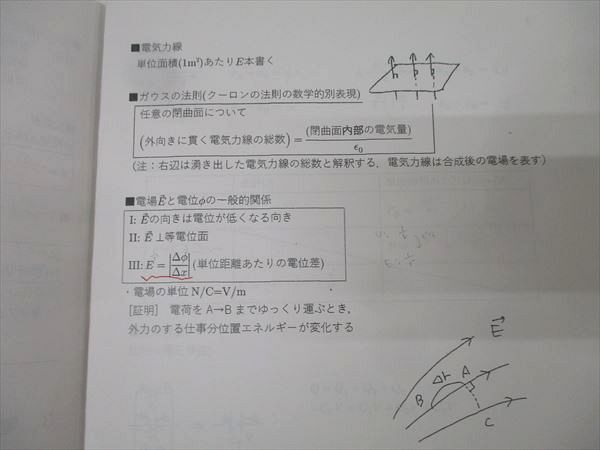 ■電気力線
単位面積(1m²)あたりE本書く
■ガウスの法則(クーロンの法則の数学的別表現)
任意の閉曲面について
(外向きに貫く電気力線の総数) = (閉曲面内部の電気量) / ε₀
(注：右辺は湧き出した電気力線の総数と解釈する，電気力線は合成後の電場を表す)
■電場E⃗と電位φの一般的関係
I: E⃗の向きは電位が低くなる向き
II: E⃗⊥等電位面
III: E = |Δφ/Δx| (単位距離あたりの電位差)
・電場の単位 N/C=V/m
[証明] 電荷を A→B までゆっくり運ぶとき，
外力のする仕事分位置エネルギーが変化する
E⃗
Δr
A
B
C